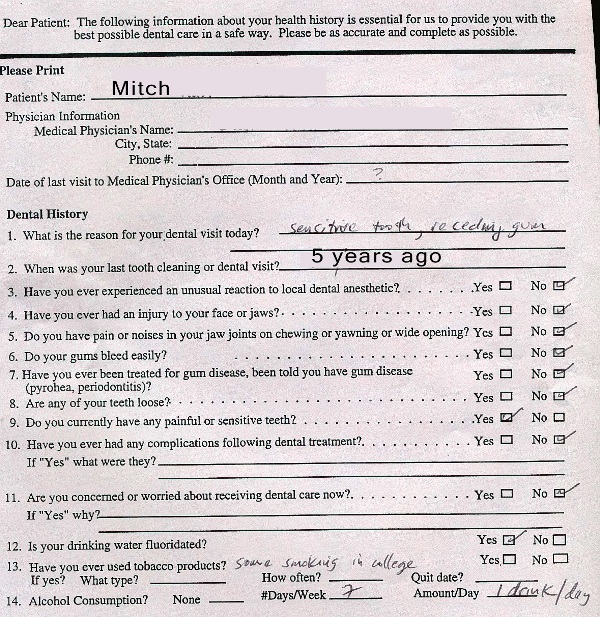 Dear Patient: The following information about your health history is essential for us to provide you with the
best possible dental care in a safe way. Please be as accurate and complete as possible.
Please Print
Patient's Name: Mitch
Physician Information
Medical Physician's Name:
City, State:
Phone #:
Date of last visit to Medical Physician's Office (Month and Year): ?
Dental History
1. What is the reason for your dental visit today? sensitive tooth, receding gum
2. When was your last tooth cleaning or dental visit? 5 years ago
3. Have you ever experienced an unusual reaction to local dental anesthetic? . . . . . . . Yes ☐ No ☑
4. Have you ever had an injury to your face or jaws? . . . . . . . . . . . . . . . . . . . Yes ☐ No ☑
5. Do you have pain or noises in your jaw joints on chewing or yawning or wide opening? Yes ☐ No ☑
6. Do your gums bleed easily? . . . . . . . . . . . . . . . . . . . . . . . Yes ☐ No ☑
7. Have you ever been treated for gum disease, been told you have gum disease Yes ☐ No ☑
(pyrohea, periodontitis)?
8. Are any of your teeth loose? . . . . . . . . . . . . . . . . . . . . . . . . . . . . Yes ☐ No ☑
9. Do you currently have any painful or sensitive teeth? . . . . . . . . . . . . . . . . . Yes ☑ No ☐
10. Have you ever had any complications following dental treatment? . . . . . . . . . . Yes ☐ No ☑
If "Yes" what were they?
11. Are you concerned or worried about receiving dental care now? . . . . . . . . . . . Yes ☐ No ☑
If "Yes" why?
12. Is your drinking water fluoridated? Yes ☑ No ☐
13. Have you ever used tobacco products? some smoking in college Yes ☐ No ☐
If yes? What type? How often? Quit date?
14. Alcohol Consumption? None #Days/Week 7 Amount/Day 1 drink/day